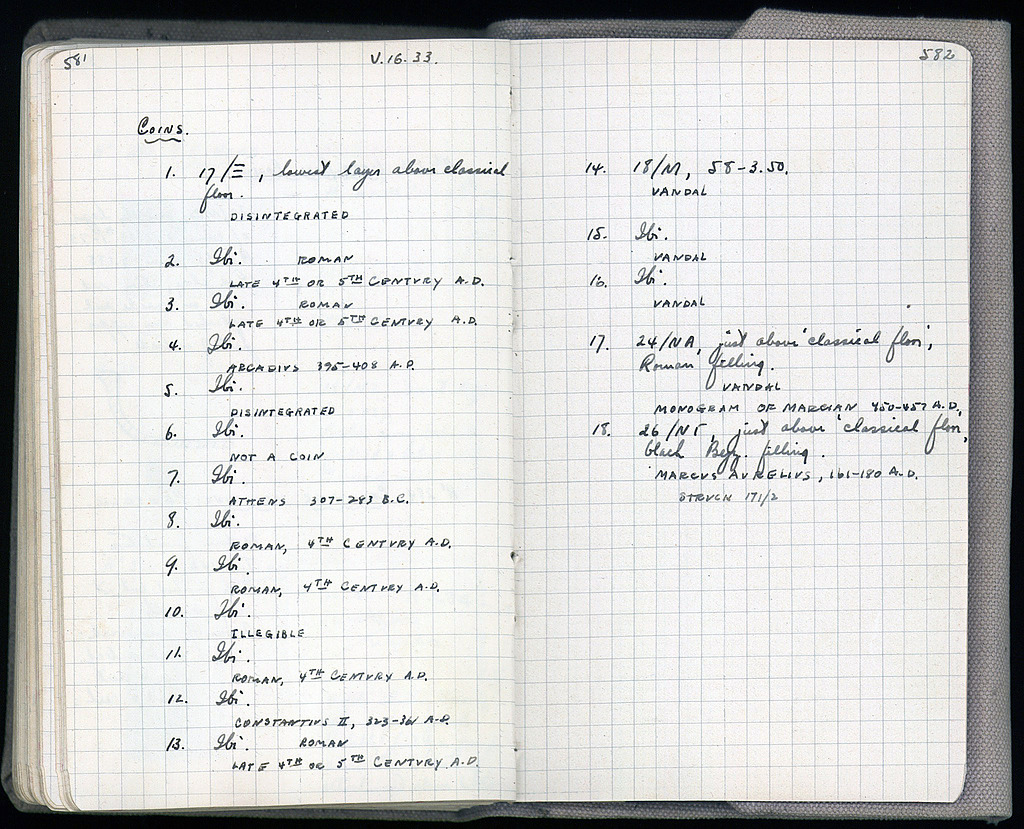 581
V.16.33.
COINS.
1. 17/Ξ, lowest layer above classical
floor.
DISINTEGRATED
2. Ibi. ROMAN
LATE 4TH OR 5TH CENTURY A.D.
3. Ibi. ROMAN
LATE 4TH OR 5TH CENTURY A.D.
4. Ibi.
ARCADIUS 395-408 A.D.
5. Ibi.
DISINTEGRATED
6. Ibi.
NOT A COIN
7. Ibi.
ATHENS 307-283 B.C.
8. Ibi.
ROMAN, 4TH CENTURY A.D.
9. Ibi.
ROMAN, 4TH CENTURY A.D.
10. Ibi.
ILLEGIBLE
11. Ibi.
ROMAN, 4TH CENTURY A.D.
12. Ibi.
CONSTANTIUS II, 323-361 A.D.
13. Ibi. ROMAN
LATE 4TH OR 5TH CENTURY A.D.
582
14. 18/M, 58-3.50.
VANDAL
15. Ibi.
VANDAL
16. Ibi.
VANDAL
17. 24/NA, just above classical floor;
Roman filling.
VANDAL
MONOGRAM OF MARCIAN 450-457 A.D.
18. 26/NΓ, just above classical floor,
black Byz. filling.
MARCUS AURELIUS, 161-180 A.D.
STRUCK 171/2